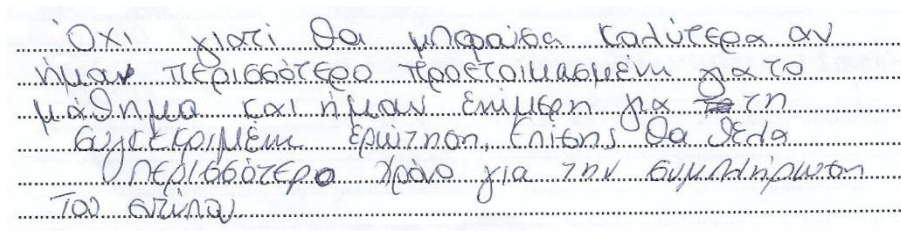 Όχι γιατί θα μπορούσα καλύτερα αν
ήμαν περισσότερο προετοιμασμένη για το
μάθημα και ήμαν ενήμερη για τη
συγκεκριμένη ερώτηση, επίσης θα θέλα
περισσότερο χρόνο για την συμπλήρωση
του εντύπου